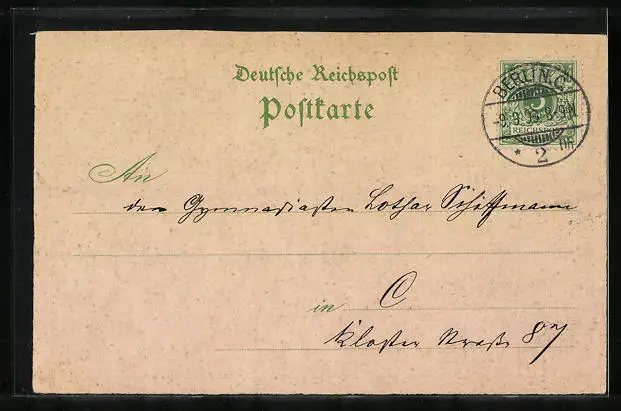 Deutsche Reichspost
Postkarte
BERLIN C
5
-8.8.95. 8-9N.
REICHSPOST
* 2
An
den Gymnasiasten Lothar Schiffmann
in C
Kloster Straße 87